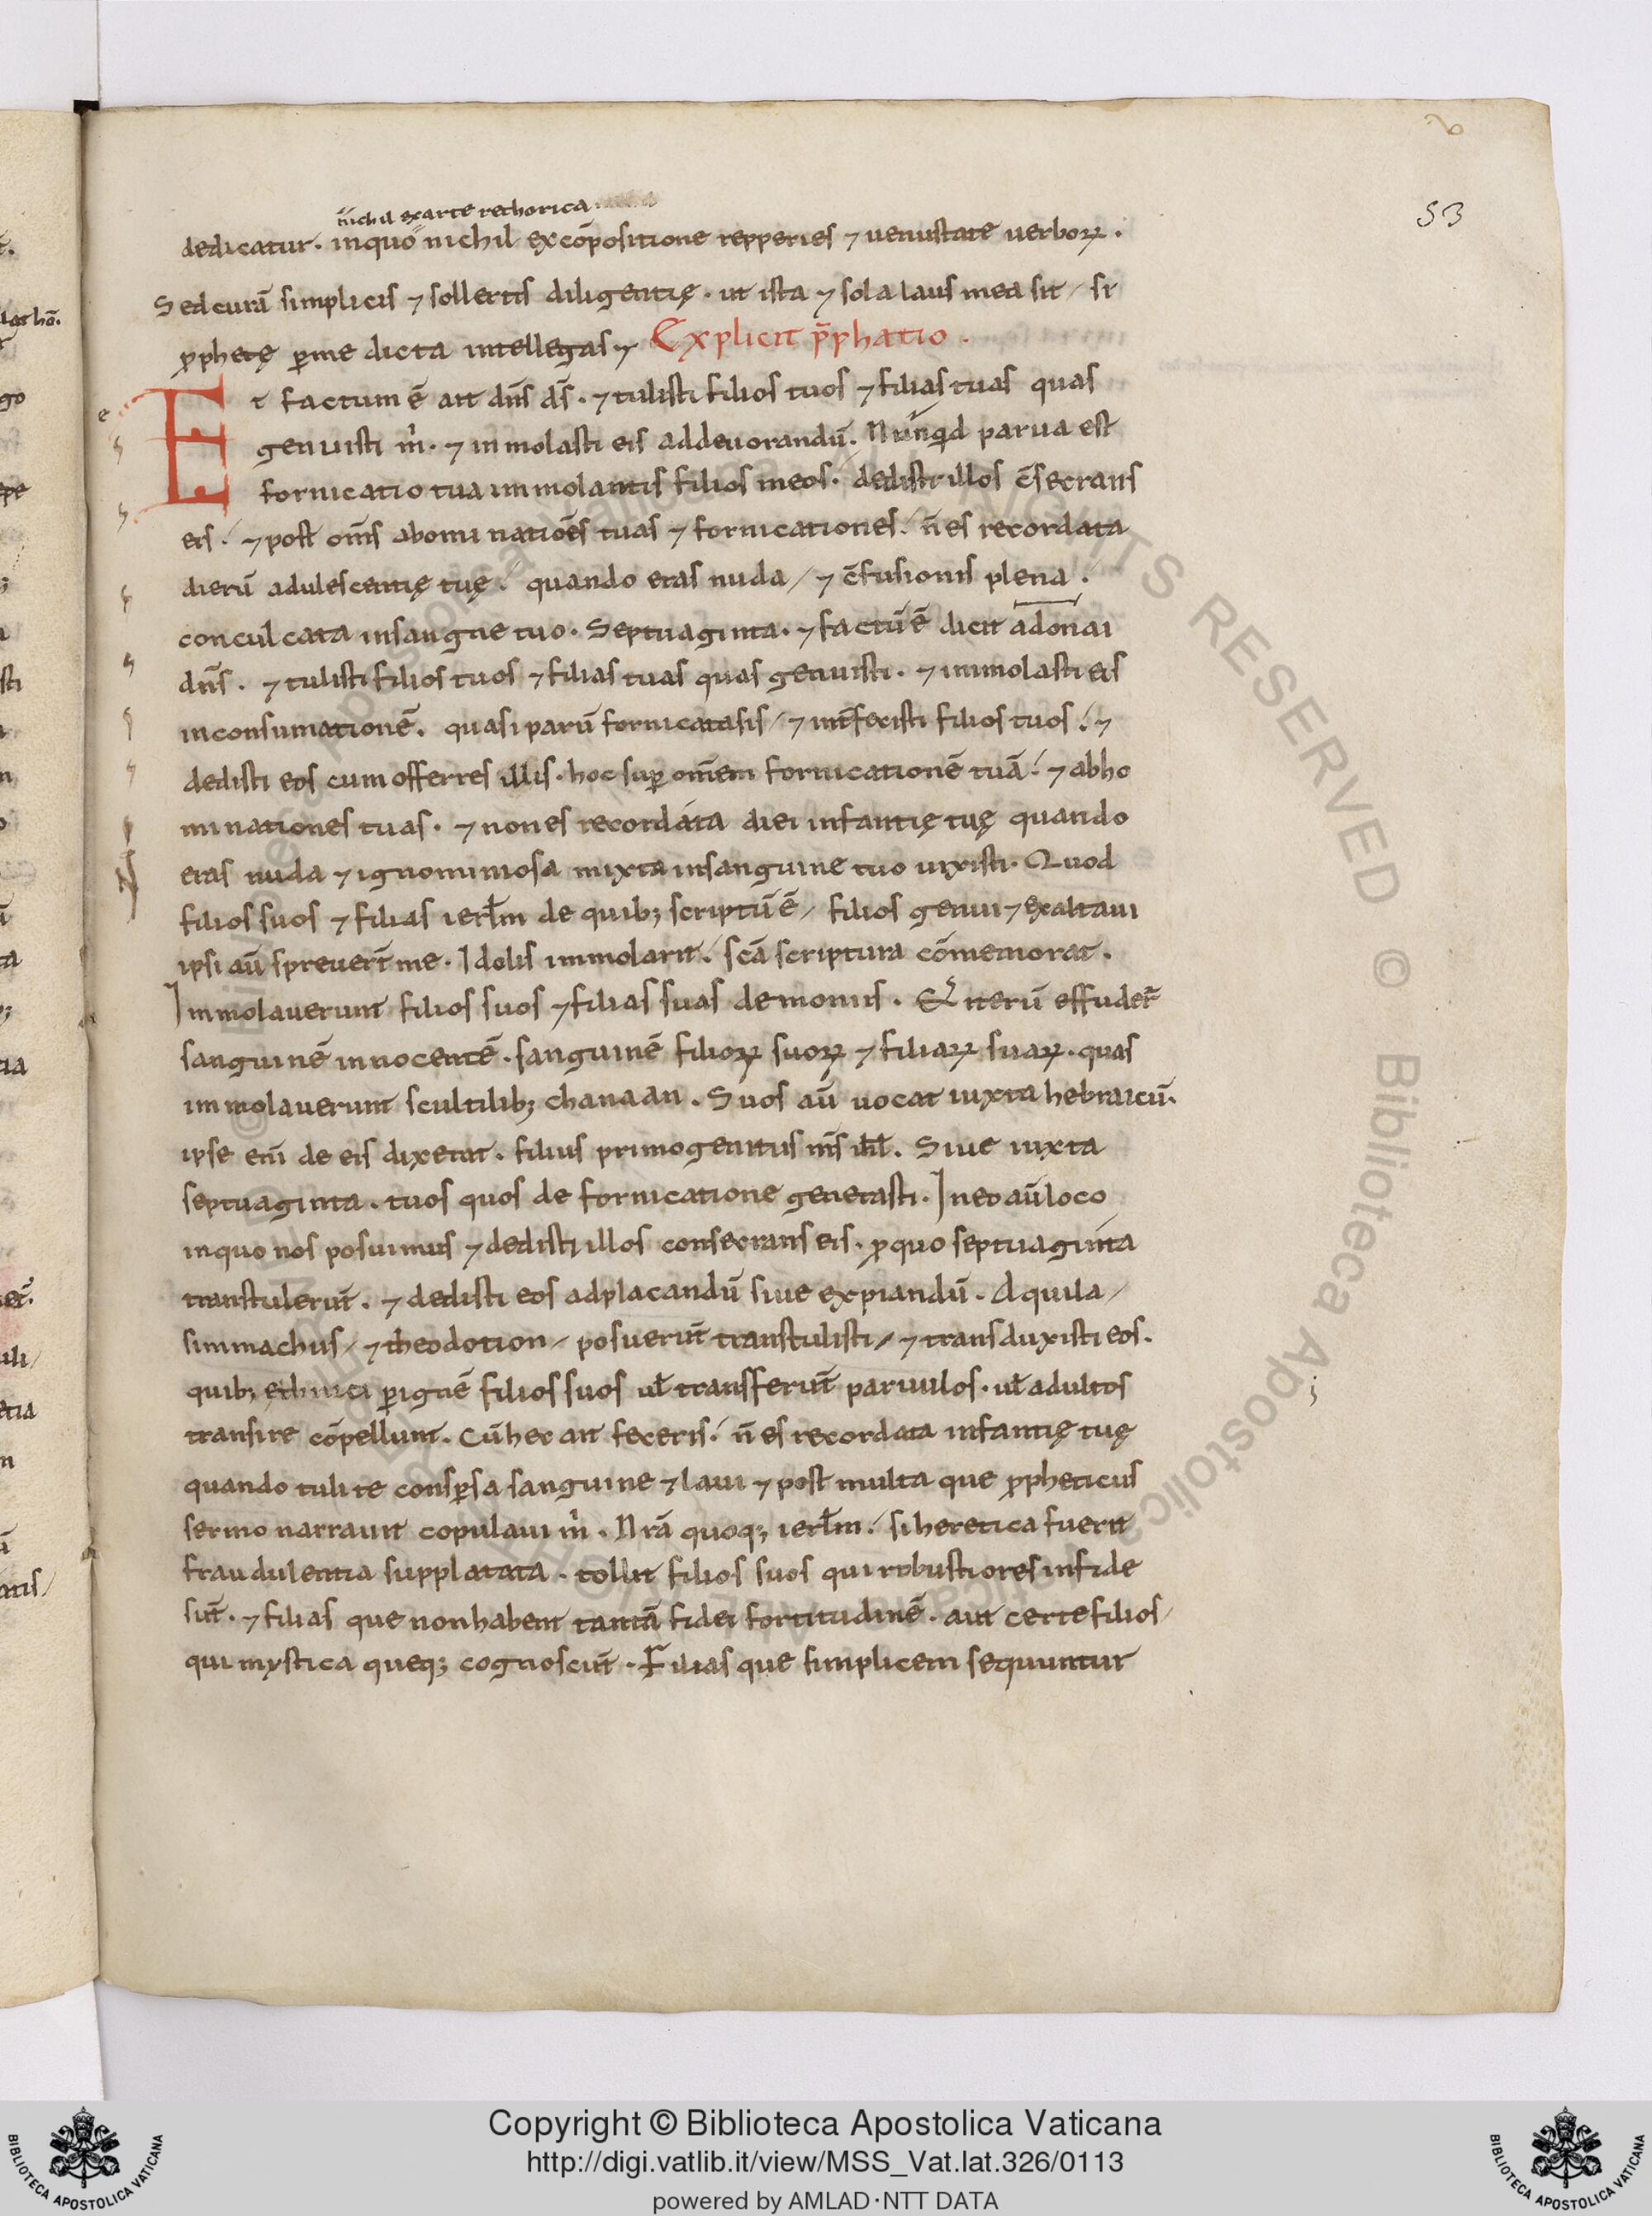 53
nichil ex arte rethorica
dedicatur. inquo nichil excōpositione repperies ⁊ uenustate uerboꝝ.
Sed curā simplicis ⁊ sollertis diligentię. ut ista ⁊ sola laus mea sit / si
ꝓphetę ꝑme dicta intellegas ⁊ Explicit p̄phatio.
Et factum ē ait dn̄s ds̄. ⁊ tulisti filios tuos ⁊ filias tuas quas
genuisti m̊. ⁊ inmolasti eis addeuorandū. Nunqid parua est
fornicatio tua immolantis filios meos. dedisti illos c̄secrans
eis. ⁊ post om̄s abominatiōes tuas ⁊ fornicationes. n̄ es recordata
dierū adulescentię tuę. quando eras nuda / ⁊ c̄fusionis plena.
conculcata insanguine tuo. Septuaginta. ⁊ factū ē dicit adonai
dn̄s. ⁊ tulisti filios tuos ⁊ filias tuas quas genuisti. ⁊ immolasti eis
inconsumationē. quasi parū fornicatasis / ⁊ int̄fecisti filios tuos. ⁊
dedisti eos cum offerres illis. hoc suꝑ om̄em fornicationē tuā. ⁊ abho
minationes tuas. ⁊ non es recordata diei infantię tuę quando
eras nuda ⁊ ignominiosa mixta insanguine tuo uixisti. Quod
filios suos ⁊ filias ierl̄m de quib; scriptū ē / filios genui ⁊ exaltaui
ipsi aū spreuert̄ me. Idolis immolarit. sc̄a scriptura cōmemorat.
Immolauerunt filios suos ⁊ filias suas demoniis. Et iterū effuder̄
sanguinē innocentē. sanguinē filioꝝ suoꝝ ⁊ filiaꝝ suaꝝ. quas
immolauerunt scultilib; chanaan. Suos aū uocat iuxta hebraicū.
ipse eni̅ de eis dixerat. filius primogenitus ms̄ ihl̄. Siue iuxta
septuaginta. tuos quos de fornicatione generasti. In eo aū loco
inquo nos posuimus ⁊ dedisti illos consecrans eis. ꝓquo septuaginta
transtulerūt. ⁊ dedisti eos adplacandū siue expiandū. Aquila /
simmachus / ⁊ theodotion / posuerūt transtulisti / ⁊ transduxisti eos.
quib; ethnici ꝑ ignē filios suos ul̄ transferūt paruulos. ul̄ adultos
transire cōpellunt. Cū hec ait feceris. n̄ es recordata infantię tuę
quando tuli te consꝑsa sanguine ⁊ laui ⁊ post multa que ꝓpheticus
sermo narrauit copulaui m̊. Nr̄ā quoq; ierl̄m. si heretica fuerit
fraudulentia supplatata. tollit filios suos qui robustiores infide
sūt. ⁊ filias que non habent tantā fidei fortitudinē. aut certe filios /
qui mystica queq; cognoscūt. Filias que simplicem sequuntur
Copyright © Biblioteca Apostolica Vaticana
http://digi.vatlib.it/view/MSS_Vat.lat.326/0113
powered by AMLAD·NTT DATA